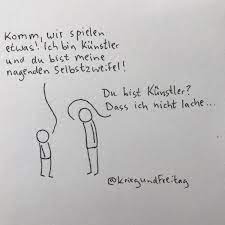 Komm, wir spielen
etwas! Ich bin Künstler
und du bist meine
nagenden Selbstzweifel!
Du bist Künstler?
Dass ich nicht lache...
@kriegundfreitag